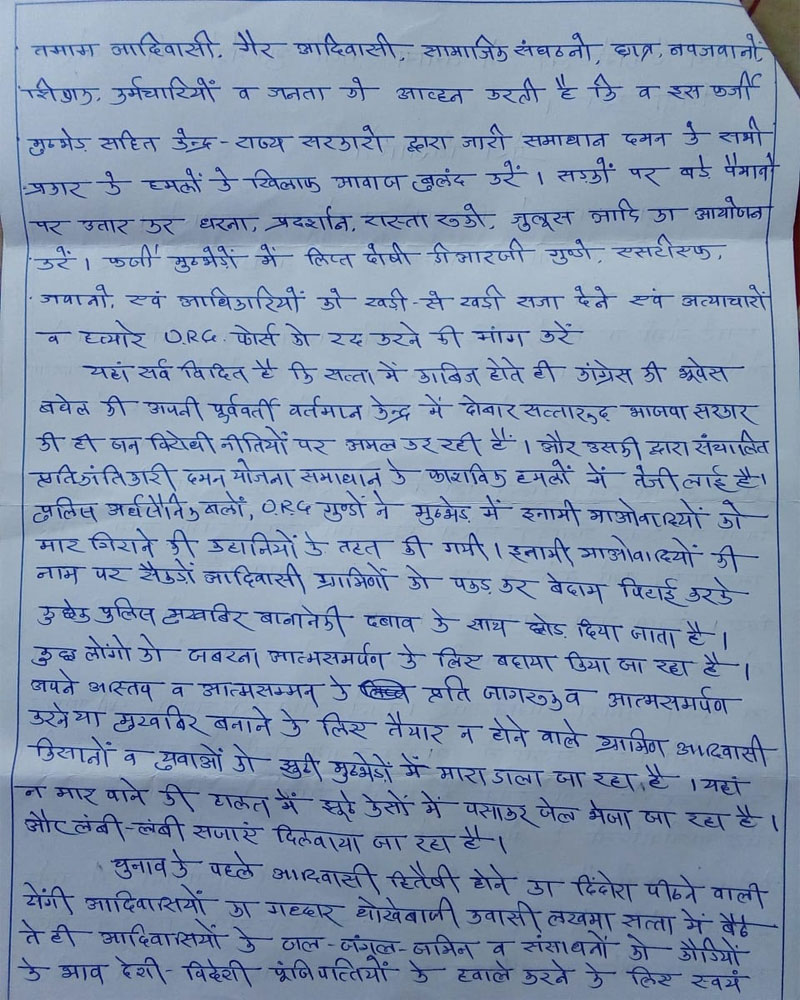 तमाम आदिवासी, गैर आदिवासी, सामाजिक संघठनो, छात्र, नवजवानों,
शिक्षक, कर्मचारियों व जनता को आव्हन करती है कि व इस फर्जी
मुठभेड़ सहित केन्द्र-राज्य सरकारो द्वारा जारी समाधान दमन के सभी
प्रकार के हमलों के खिलाफ आवाज बुलंद करें । सड़कों पर बड़े पैमाने
पर उतार कर धरना, प्रदर्शन, रास्ता रुको, जुलूस आदि का आयोजन
करें । फर्जी मुठभेड़ों में लिप्त दोषी डीआरजी गुण्डे, एसटीएफ,
जवानो, एवं आधिकारियों को खडी-से खडी सजा देने एवं अत्याचारों
व हत्यारे D.R.G. फोर्स को रद करने की मांग करें
यहां सर्व विदित है कि सत्ता में काबिज होते ही कांग्रेस की भूपेस
बघेल की अपनी पूर्ववर्ती वर्तमान केन्द्र में दोबार सत्तारूढ भाजपा सरकार
की ही जन विरोधी नीतियों पर अमल कर रही है । और उसकी द्वारा संचालित
प्रतिक्रांतिकारी दमन योजना समाधान के फाशविक हमलों में तेजी लाई है।
पुलिस अर्धसैनिक बलों, D.R.G गुण्डों ने मुठभेड़ में इनामी माओवादियों को
मार गिराने की कहानियों के तहत की गयी । इनामी माओवादियों की
नाम पर सैकड़ों आदिवासी ग्रामिणों को पकड़ कर बेदाम पिटाई करके
कुछेक पुलिस मुखबिर बानानेकी दबाव के साथ छोड़ दिया जाता है ।
कुछ लोंगो को जबरना आत्मसमर्पण के लिए बढ़ाया किया जा रहा है ।
अपने अस्तव व आत्मसम्मन के प्रति जागरूक व आत्मसमर्पण
करने या मुखबिर बनाने के लिए तैयार न होने वाले ग्रामिण आदिवासी
किसानों व युवाओं को झुठी मुठभेड़ों में मारा डाला जा रहा है । यहां
न मार पाने की हालत में झूठे केसों में पसाकर जेल भेजा जा रहा है ।
और लंबी-लंबी सजाएं दिलवाया जा रहा है ।
चुनाव के पहले आदिवासी हितैषी होने का ढिंढोरा पीठने वाली
येंगी आदिवासियों का गद्दार धोखेबाजी कवासी लखमा सत्ता में बैठे
ते ही आदिवासियों के जल-जंगल-जमिन व संसाधनों को कौडियों
के भाव देशी-विदेशी पूंजिपत्तियों के हवाले करने के लिए स्वयं